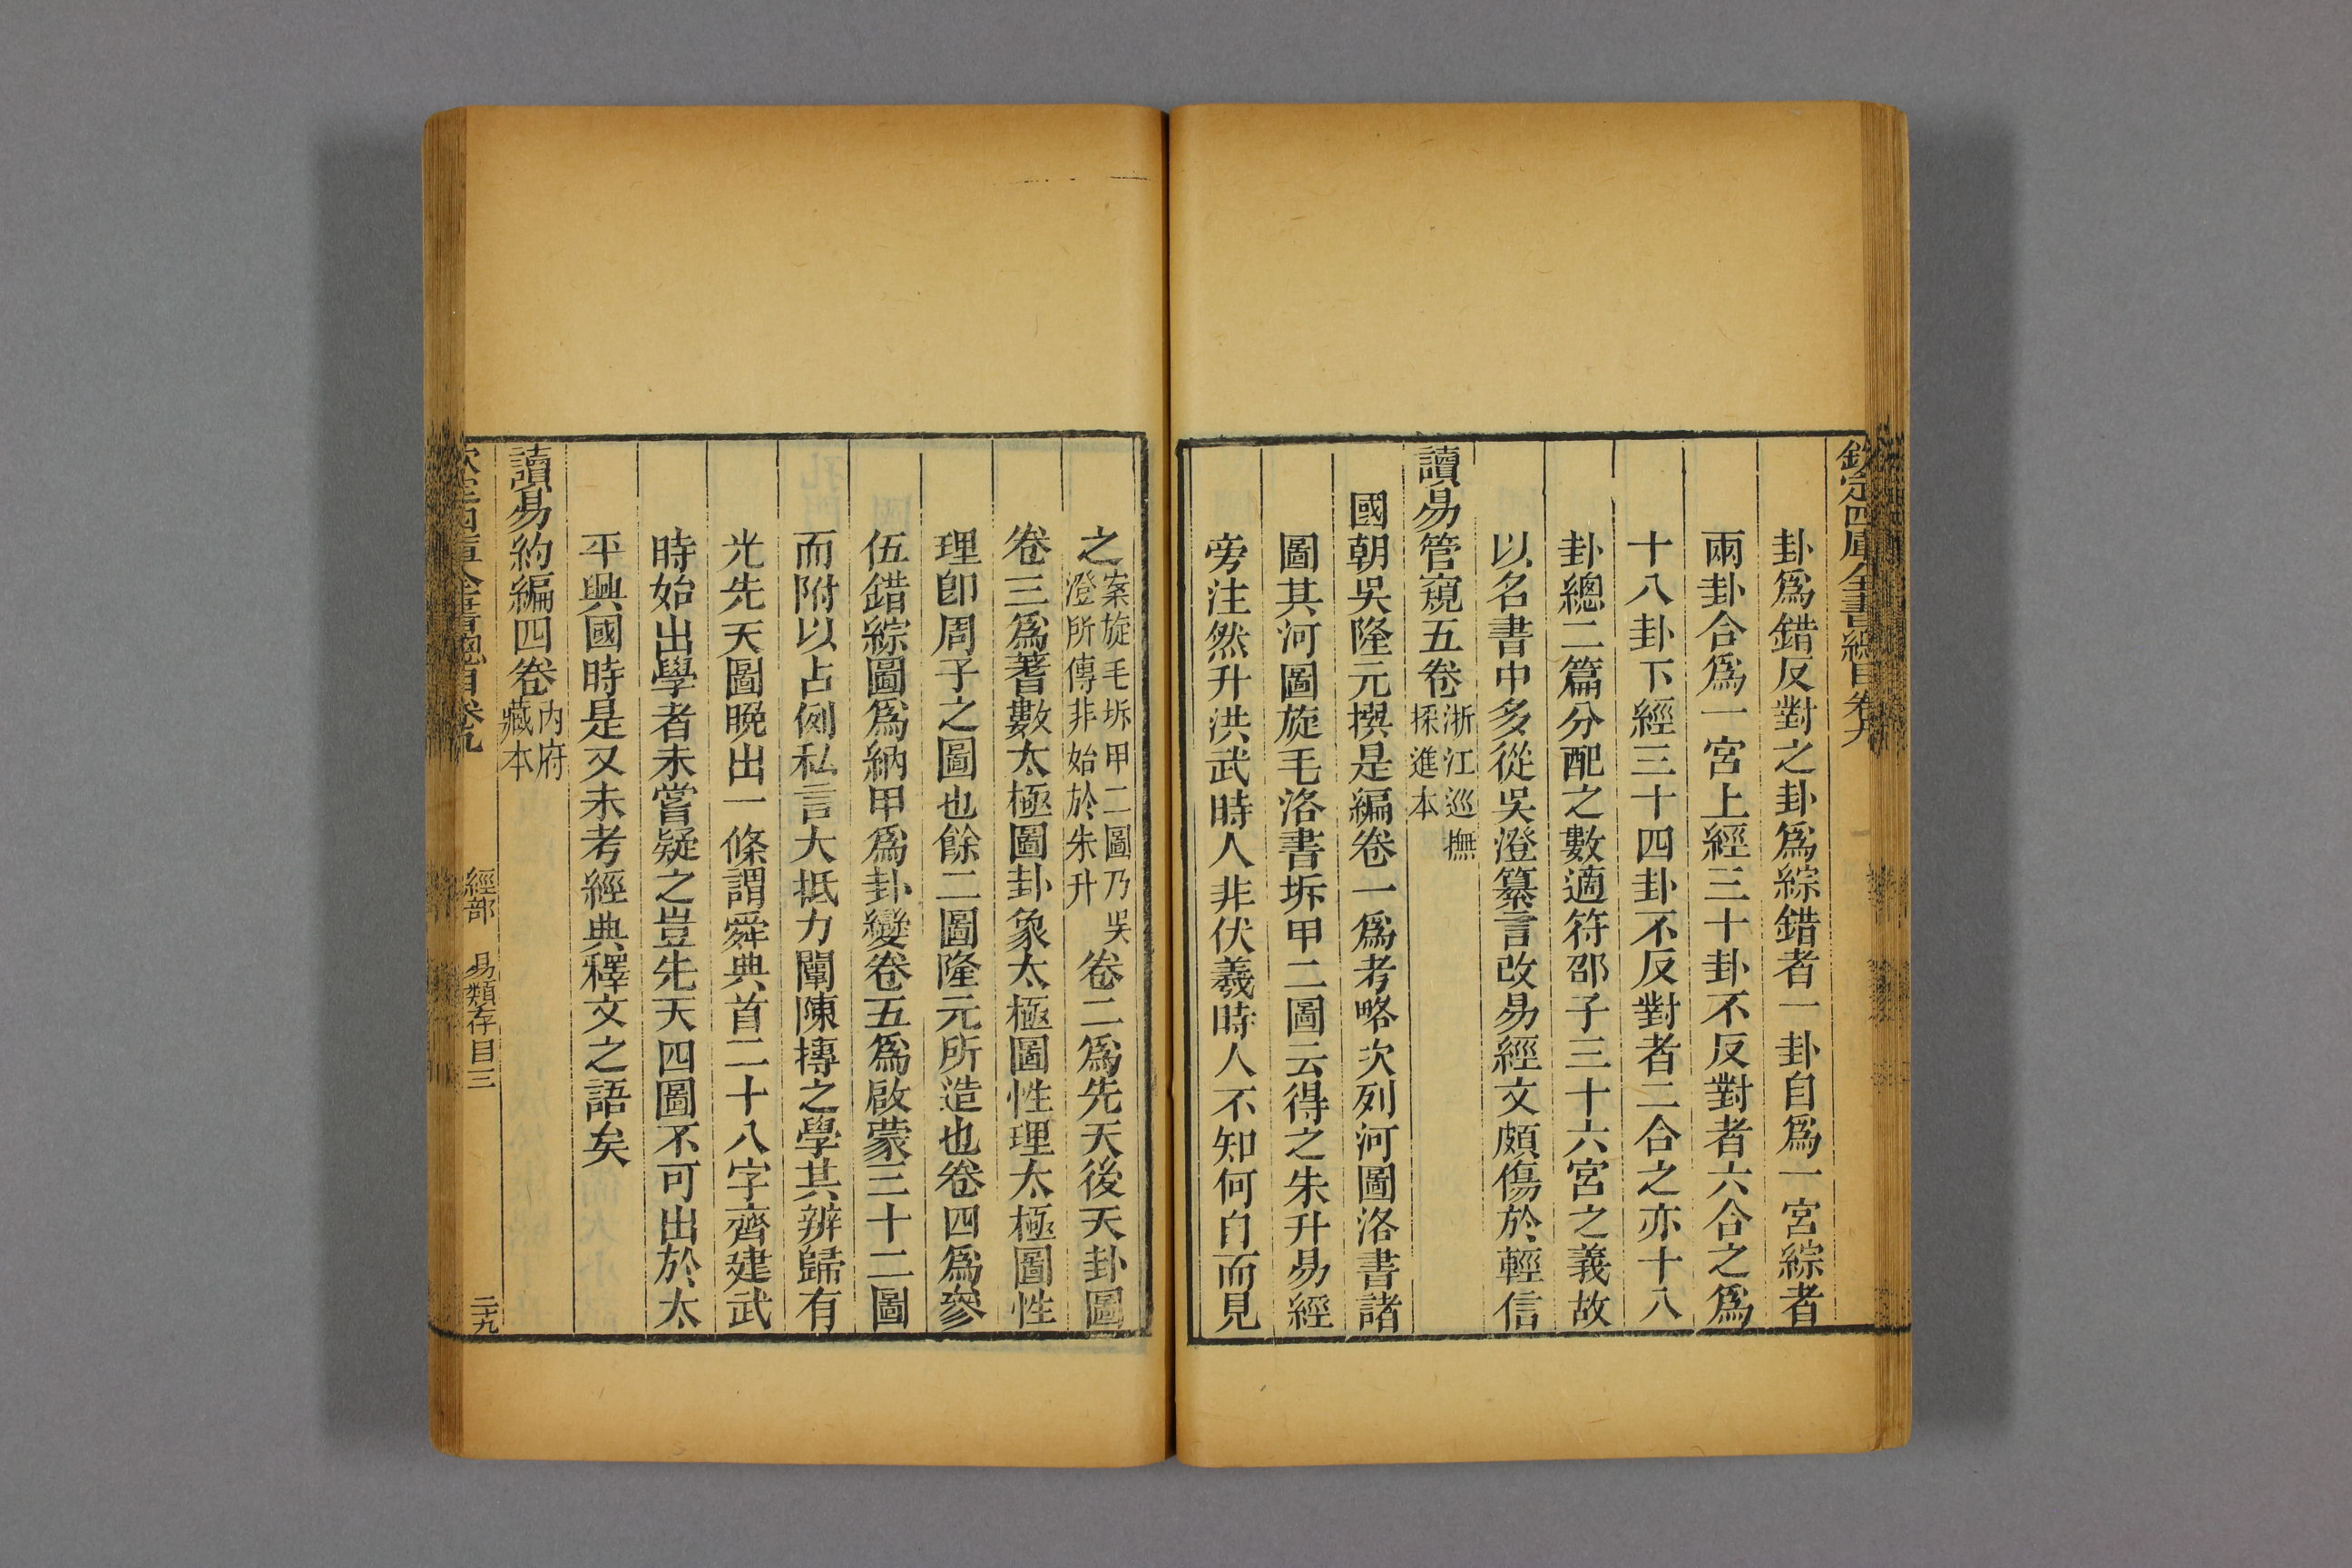 欽定四庫全書總目卷九
卦爲錯反對之卦爲綜錯者一卦自爲一宮綜者
兩卦合爲一宮上經三十卦不反對者六合之爲
十八卦下經三十四卦不反對者二合之亦十八
卦總二篇分配之數適符邵子三十六宮之義故
以名書中多從吳澄纂言改易經文頗傷於輕信
讀易管窺五卷浙江巡撫採進本
國朝吳隆元撰是編卷一爲考略次列河圖洛書諸
圖其河圖旋毛洛書坼甲二圖云得之朱升易經
旁注然升洪武時人非伏羲時人不知何自而見
之案旋毛坼甲二圖乃吳澄所傳非始於朱升卷二爲先天後天卦圖
卷三爲蓍數太極圖卦象太極圖性理太極圖性
理卽周子之圖也餘二圖隆元所造也卷四爲參
伍錯綜圖爲納甲爲卦變卷五爲啟蒙三十二圖
而附以占例私言大抵力闡陳摶之學其辨歸有
光先天圖晚出一條謂舜典首二十八字齊建武
時始出學者未嘗疑之豈先天四圖不可出於太
平興國時是又未考經典釋文之語矣
讀易約編四卷內府藏本
欽定四庫全書總目卷九 經部 易類存目三 二十九